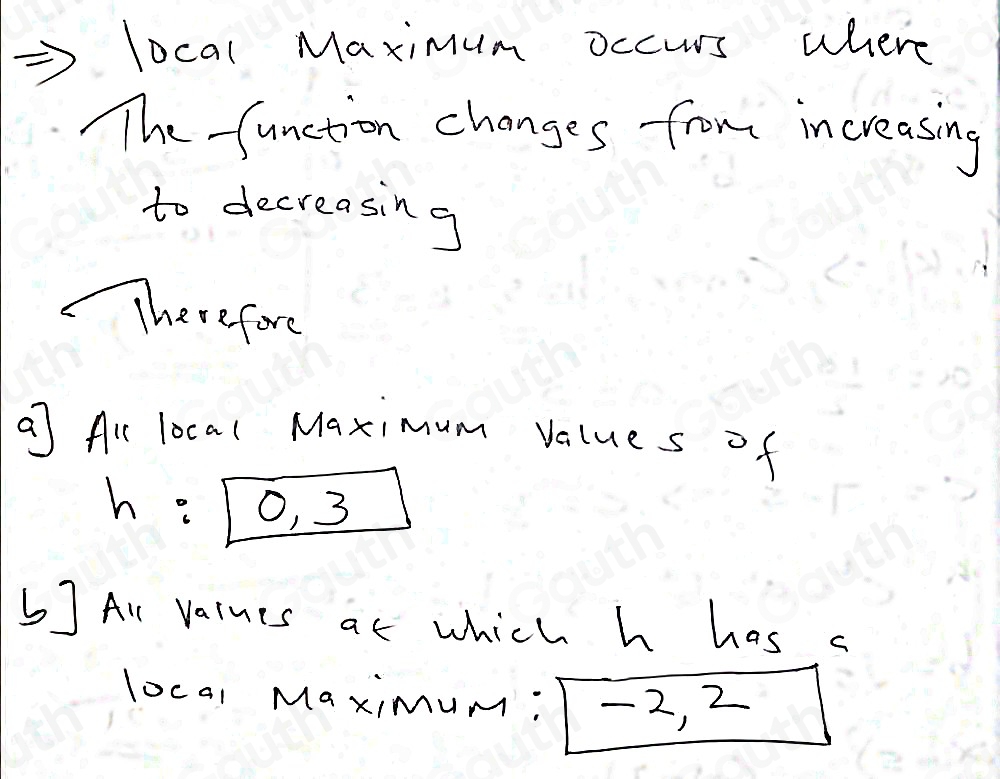 ⇒ local Maximum occurs where
The function changes from increasing
to decreasing
Therefore
a] All local Maximum Values of
h : 0, 3
b] All Values at which h has a
local Maximum : -2, 2